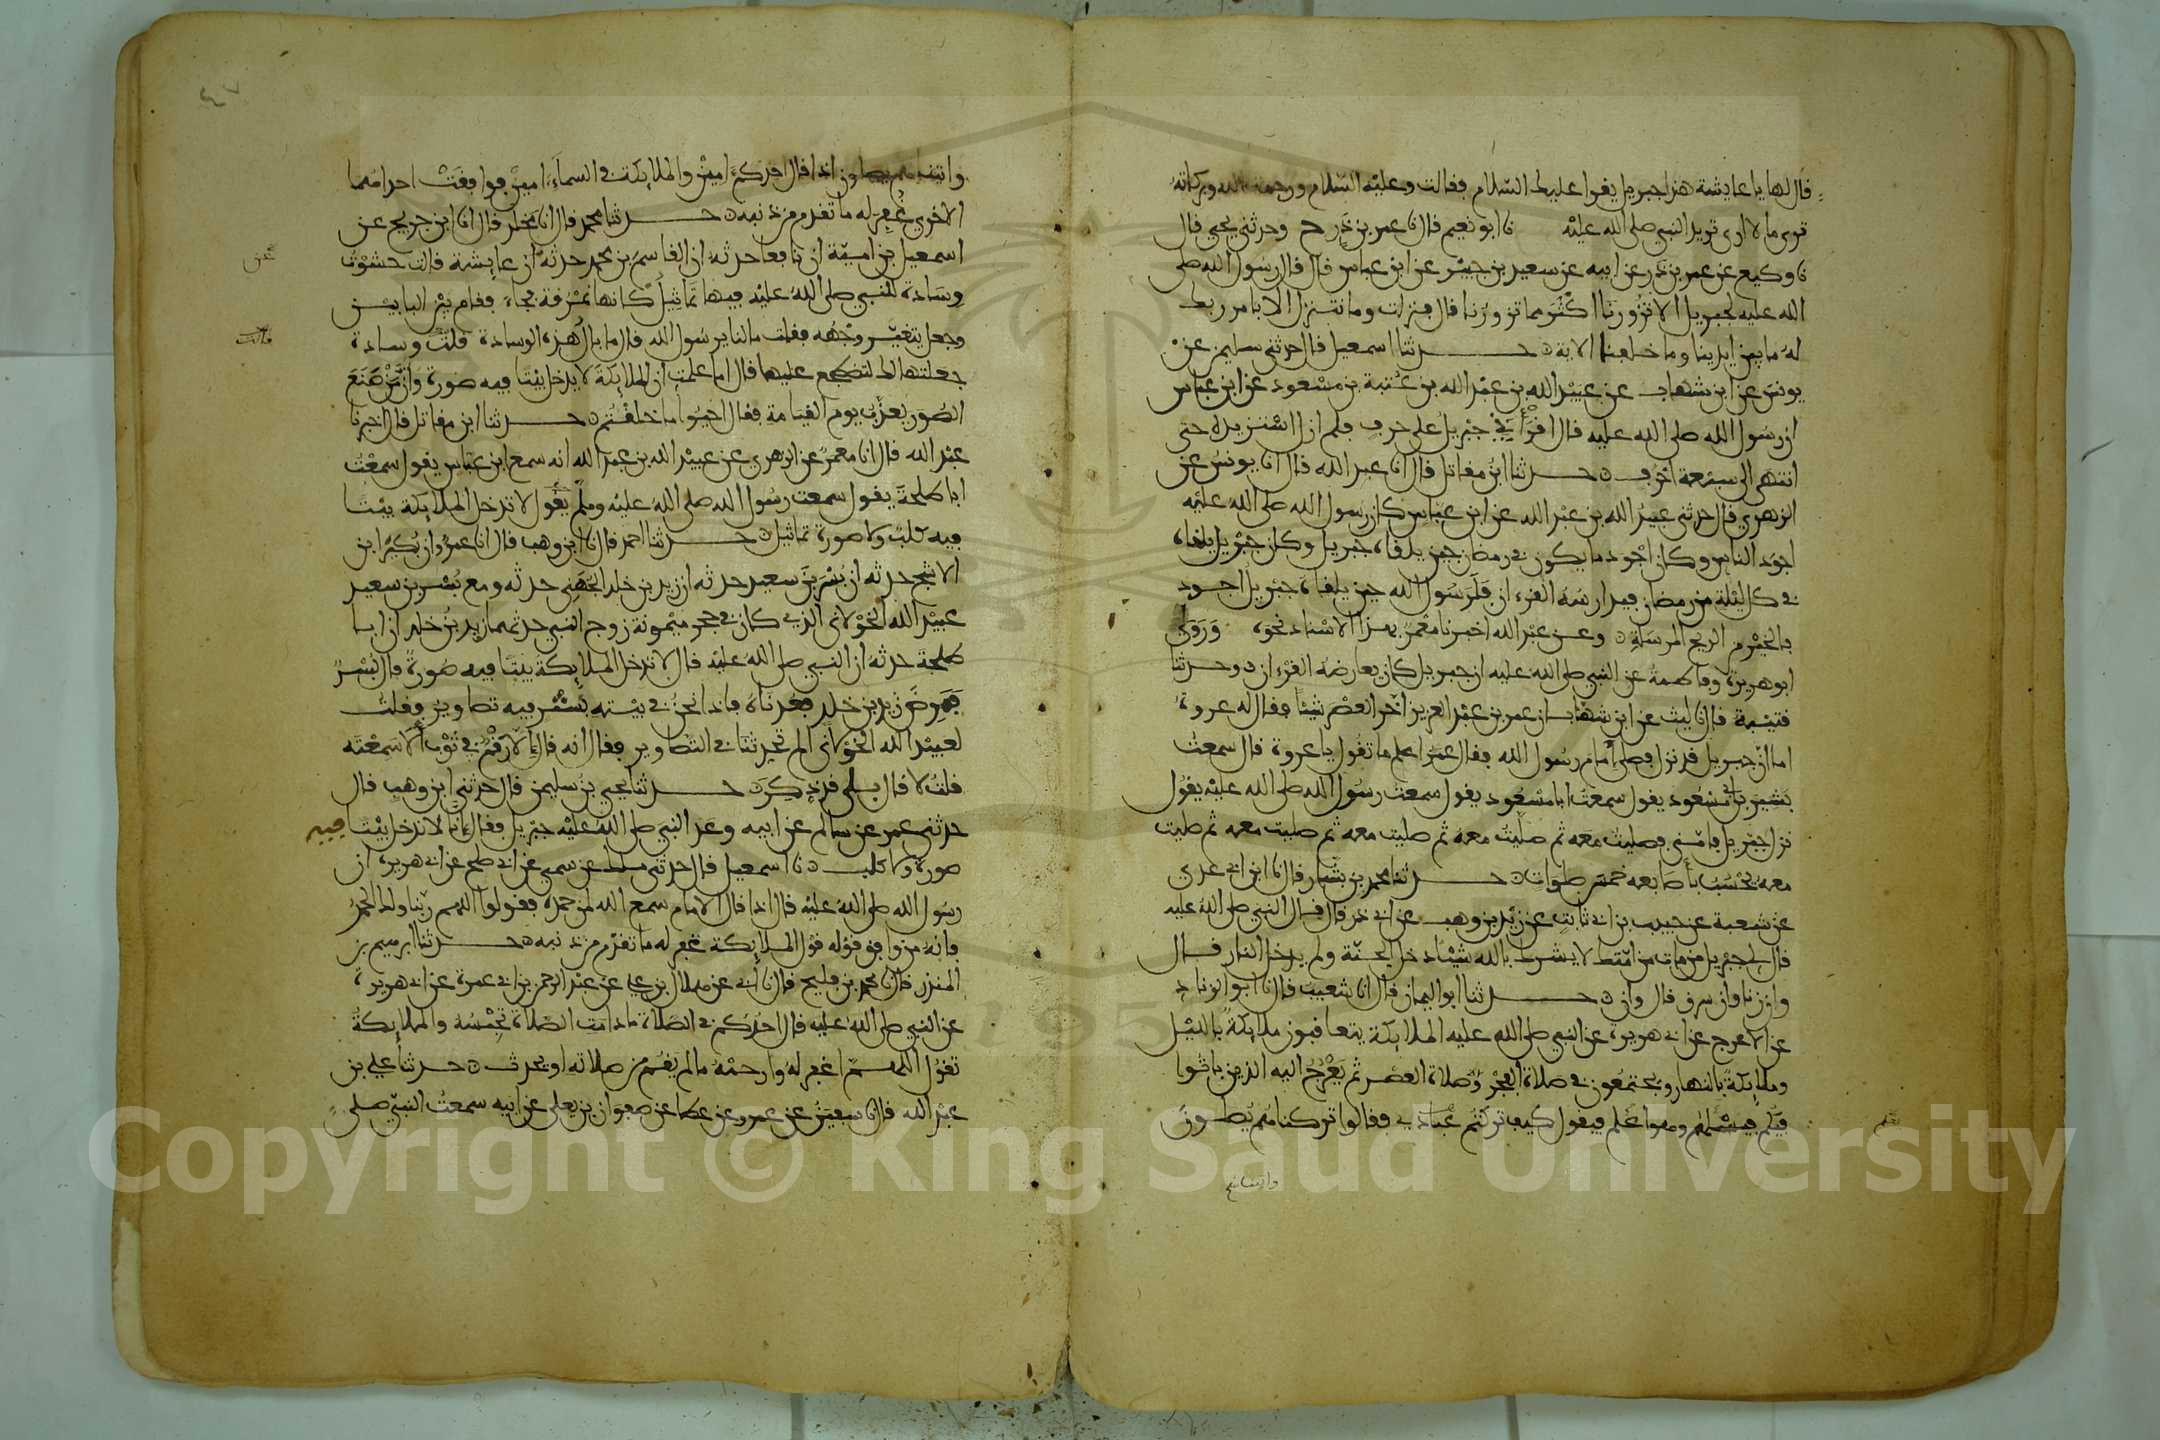 قال لها يا عايشة هذا جبريل يقرا عليك السلام فقالت وعليه السلام ورحمة الله وبركاته
ترى ما لا ارى تريد النبي صلى الله عليه نا ابو نعيم قال نا عمر بن ذر ح وحدثني يحيى قال
نا وكيع عن عمر بن ذر عن ابيه عن سعيد بن جبير عن ابن عباس قال قال رسول الله صلى
الله عليه لجبريل الا تزورنا اكثر مما تزورنا قال فنزلت وما نتنزل الا بامر ربك
له ما بين ايدينا وما خلفنا الاية حدثنا اسمعيل قال حدثني سليمن عن
يونس عن ابن شهاب عن عبيد الله بن عبد الله بن عتبة بن مسعود عن ابن عباس
ان رسول الله صلى الله عليه قال اقرأني جبريل على حرف فلم ازل استزيده حتى
انتهى الى سبعة احرف حدثنا ابن مقاتل قال انا عبد الله قال انا يونس عن
الزهري قال حدثني عبيد الله بن عبد الله عن ابن عباس كان رسول الله صلى الله عليه
اجود الناس وكان اجود ما يكون في رمضان حين يلقاه جبريل وكان جبريل يلقاه
في كل ليلة من رمضان فيدارسه القرءان فلرسول الله حين يلقاه جبريل اجود
بالخير من الريح المرسلة وعن عبد الله اخبرنا معمر بهذا الاسناد نحوه وروى
ابو هريرة وفاطمة عن النبي صلى الله عليه ان جبريل كان يعارضه القرءان وحدثنا
قتيبة قال نا ليث عن ابن شهاب ان عمر بن عبد العزيز اخر العصر شيئا فقال له عروة
اما ان جبريل قد نزل فصلى امام رسول الله فقال عمر اعلم ما تقول يا عروة قال سمعت
بشير بن ابي مسعود يقول سمعت ابا مسعود يقول سمعت رسول الله صلى الله عليه يقول
نزل جبريل فامني فصليت معه ثم صليت معه ثم صليت معه ثم صليت معه ثم صليت
معه يحسب بأصابعه خمس صلوات حدثنا محمد بن بشار قال نا ابن ابي عدي
عن شعبة عن حبيب بن ابي ثابت عن زيد بن وهب عن ابي ذر قال قال النبي صلى الله عليه
قال لي جبريل من مات من امتك لا يشرك بالله شيئا دخل الجنة ولم يدخل النار قال
وان زنا وان سرق قال وان حدثنا ابو اليمان قال انا شعيب قال نا ابو الزناد
عن الاعرج عن ابي هريرة عن النبي صلى الله عليه الملايكة يتعاقبون ملايكة بالليل
وملايكة بالنهار ويجتمعون في صلاة الفجر وصلاة العصر ثم يعرج اليه الذين باتوا
فيكم فيسئلهم وهو اعلم فيقول كيف تركتم عبادي فقالوا تركناهم يصلون
واتيناهم
واتيناهم يصلون اذا قال احدكم امين والملايكة في السماء امين فوافقت احداهما
الاخرى غفر له ما تقدم من ذنبه حدثنا محمد قال انا مخلد قال انا ابن جريج عن
اسمعيل بن امية ان نافعا حدثه ان القاسم بن محمد حدثه عن عايشة قالت حشوت
وسادة للنبي صلى الله عليه فيها تماثيل كانها نمرقة فجاء فقام بين البابين
وجعل يتغير وجهه فقلت ما لنا يرسول الله قال ما بال هذه الوسادة قلت وسادة
جعلتها لك لتضطجع عليها قال اما علمت ان الملايكة لا يدخل بيتا فيه صورة وان من صنع
الصور يعذب يوم القيامة فقال احيوا ما خلقتم حدثنا ابن مقاتل قال اخبرنا
عبد الله قال انا معمر عن الزهري عن عبيد الله بن عبد الله انه سمع ابن عباس يقول سمعت
ابا طلحة يقول سمعت رسول الله صلى الله عليه وسلم يقول لا تدخل الملايكة بيتا
فيه كلب ولا صورة تماثيل حدثنا احمد قال نا ابن وهب قال انا عمرو ان بكير ابن
الاشج حدثه ان بسر بن سعيد حدثه ان زيد بن خلد الجهني حدثه ومع بسر بن سعيد
عبيد الله الخولاني الذي كان في حجر ميمونة زوج النبي حدثهما زيد بن خلد ان ابا
طلحة حدثه ان النبي صلى الله عليه قال لا تدخل الملايكة بيتا فيه صورة قال بسر
فمرض زيد بن خلد فعدناه فاذا نحن في بيته بستر فيه تصاوير فقلت
لعبيد الله الخولاني الم تحدثنا في التصاوير فقال انه قال الا رقم في ثوب الا سمعته
قلت لا قال بلى قد ذكره حدثنا يحيى بن سليمن قال حدثني ابن وهب قال
حدثني عمر عن سالم عن ابيه وعد النبي صلى الله عليه جبريل فقال انا لا ندخل بيتا فيه
صورة ولا كلب نا اسمعيل قال حدثني ملك عن سمي عن ابي صلح عن ابي هريرة ان
رسول الله صلى الله عليه قال اذا قال الامام سمع الله لمن حمده فقولوا اللهم ربنا ولك الحمد
فانه من وافق قوله قول الملايكة غفر له ما تقدم من ذنبه حدثنا ابرهيم بن
المنذر قال نا محمد بن فليح قال نا ابي عن هلال بن علي عن عبد الرحمن بن ابي عمرة عن ابي هريرة
عن النبي صلى الله عليه قال احدكم في الصلاة ما دامت الصلاة تحبسه والملايكة
تقول اللهم اغفر له وارحمه ما لم يقم من صلاته او يحدث حدثنا علي بن
عبد الله قال نا سفين عن عمرو عن عطا عن صفوان بن يعلى عن ابيه سمعت النبي صلى
عن
قالت
Copyright © King Saud University